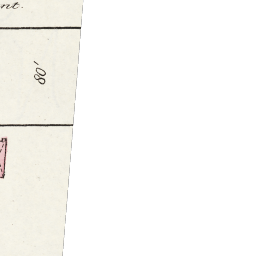 nt.
80'